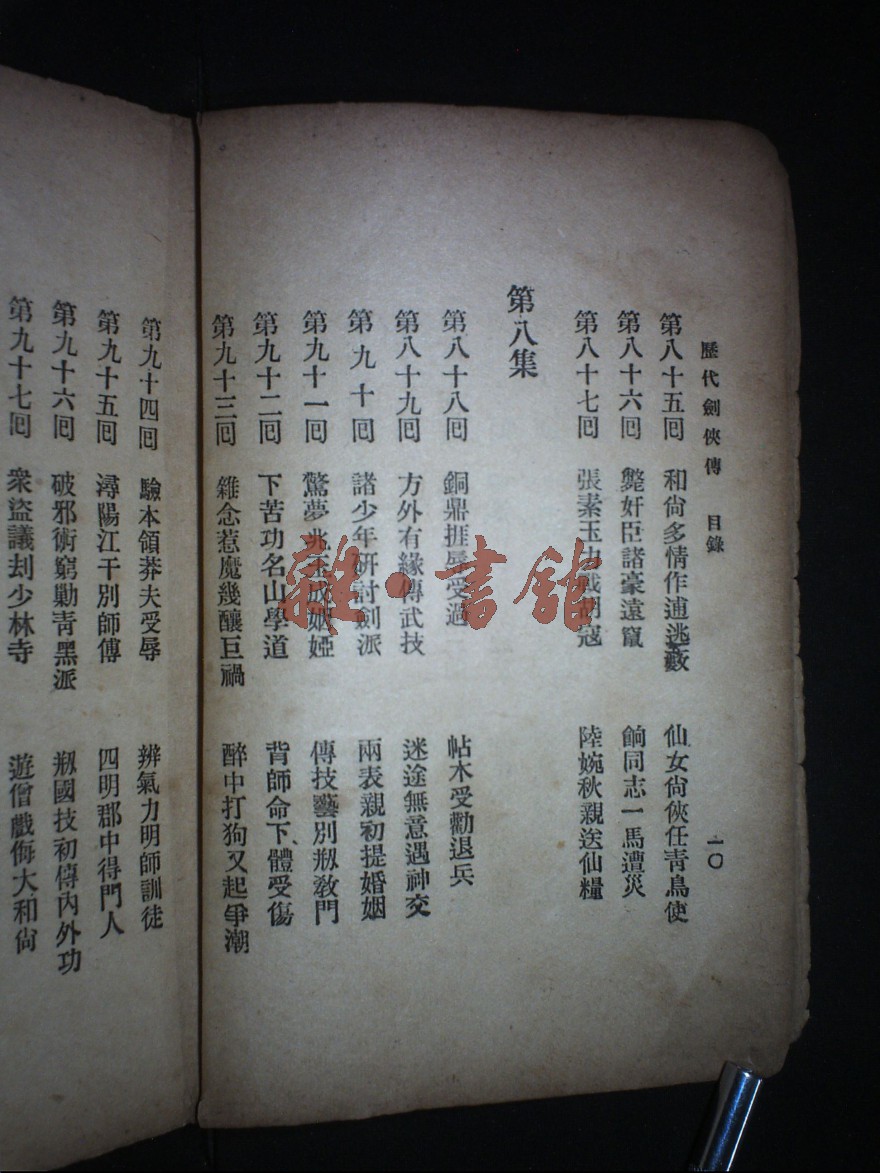 歷代劍俠傳 目錄 一〇
第八十五回 和尙多情作逋逃藪 仙女尙俠任靑鳥使
第八十六回 斃奸臣諸豪遠竄 餉同志一馬遭災
第八十七回 張素玉 戰 寇 陸婉秋親送仙糧
第八集
第八十八回 銅鼎捱辱受過 帖木受勸退兵
第八十九回 方外有緣傳武技 迷途無意遇神交
第九十回 諸少年硏討劍派 兩表親初提婚姻
第九十一回 驚夢兆 成姻婭 傳技藝別剏敎門
第九十二回 下苦功名山學道 背師命下體受傷
第九十三回 雜念惹魔幾釀巨禍 醉中打狗又起爭潮
第九十四回 驗本領莽夫受辱 辨氣力明師訓徒
第九十五回 潯陽江干別師傅 四明郡中得門人
第九十六回 破邪術窮勦靑黑派 剏國技初傳內外功
第九十七回 衆盜議刦少林寺 遊僧戲侮大和尙
雜·書館